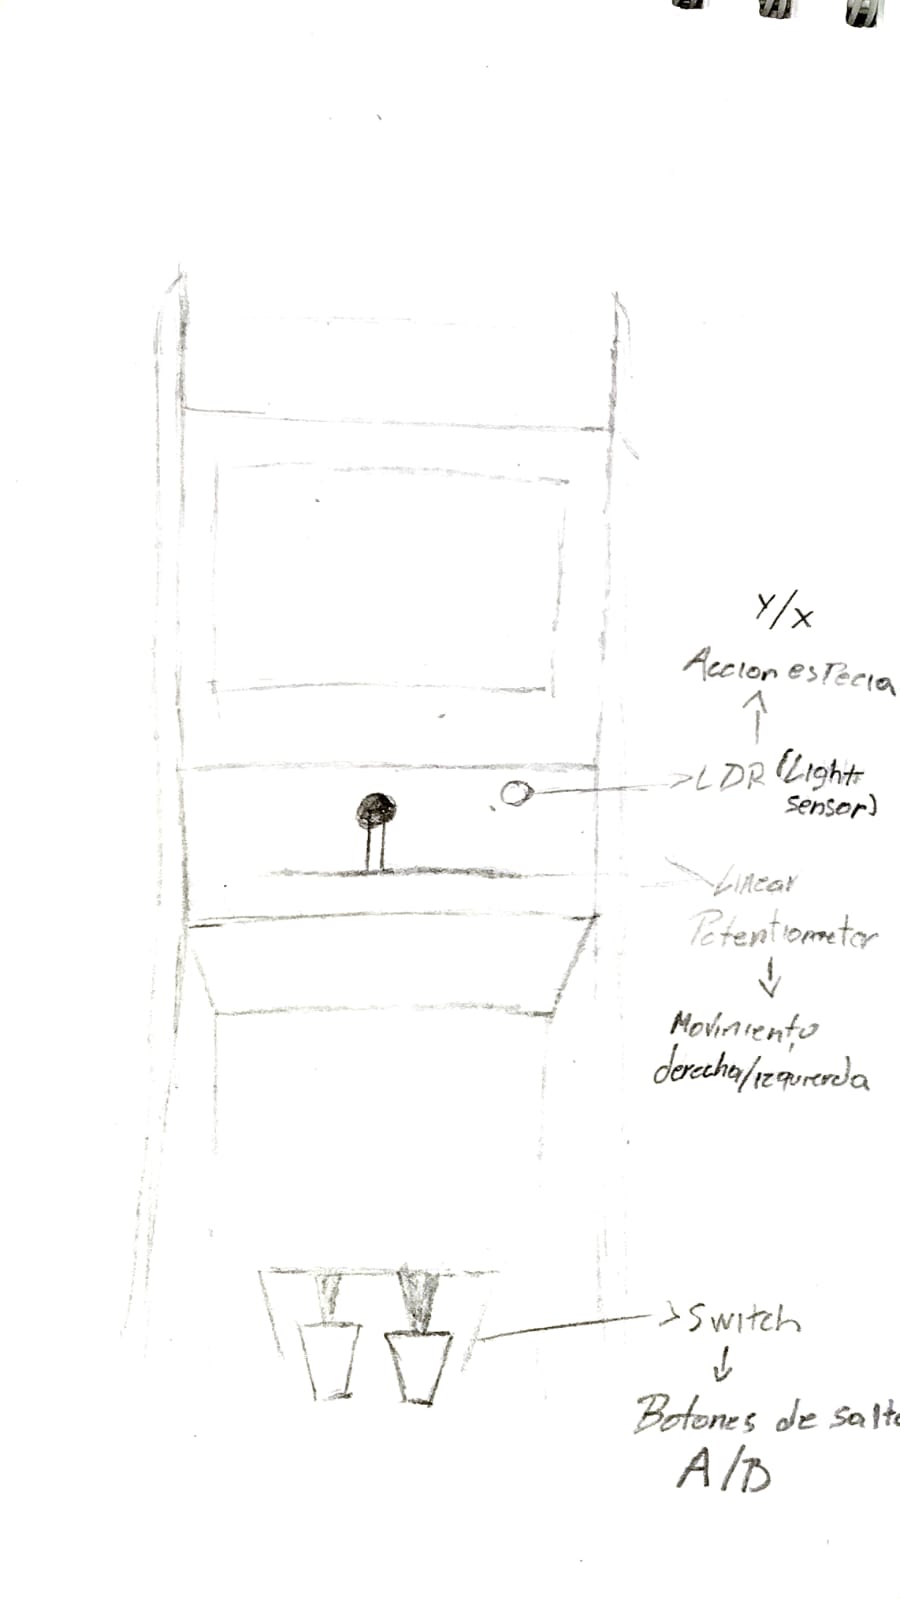 Y/X
Accion especia
LDR (Light
sensor)
Linear
Potentiometer
Movimiento
derecha/izquierda
Switch
Botones de salto
A/B